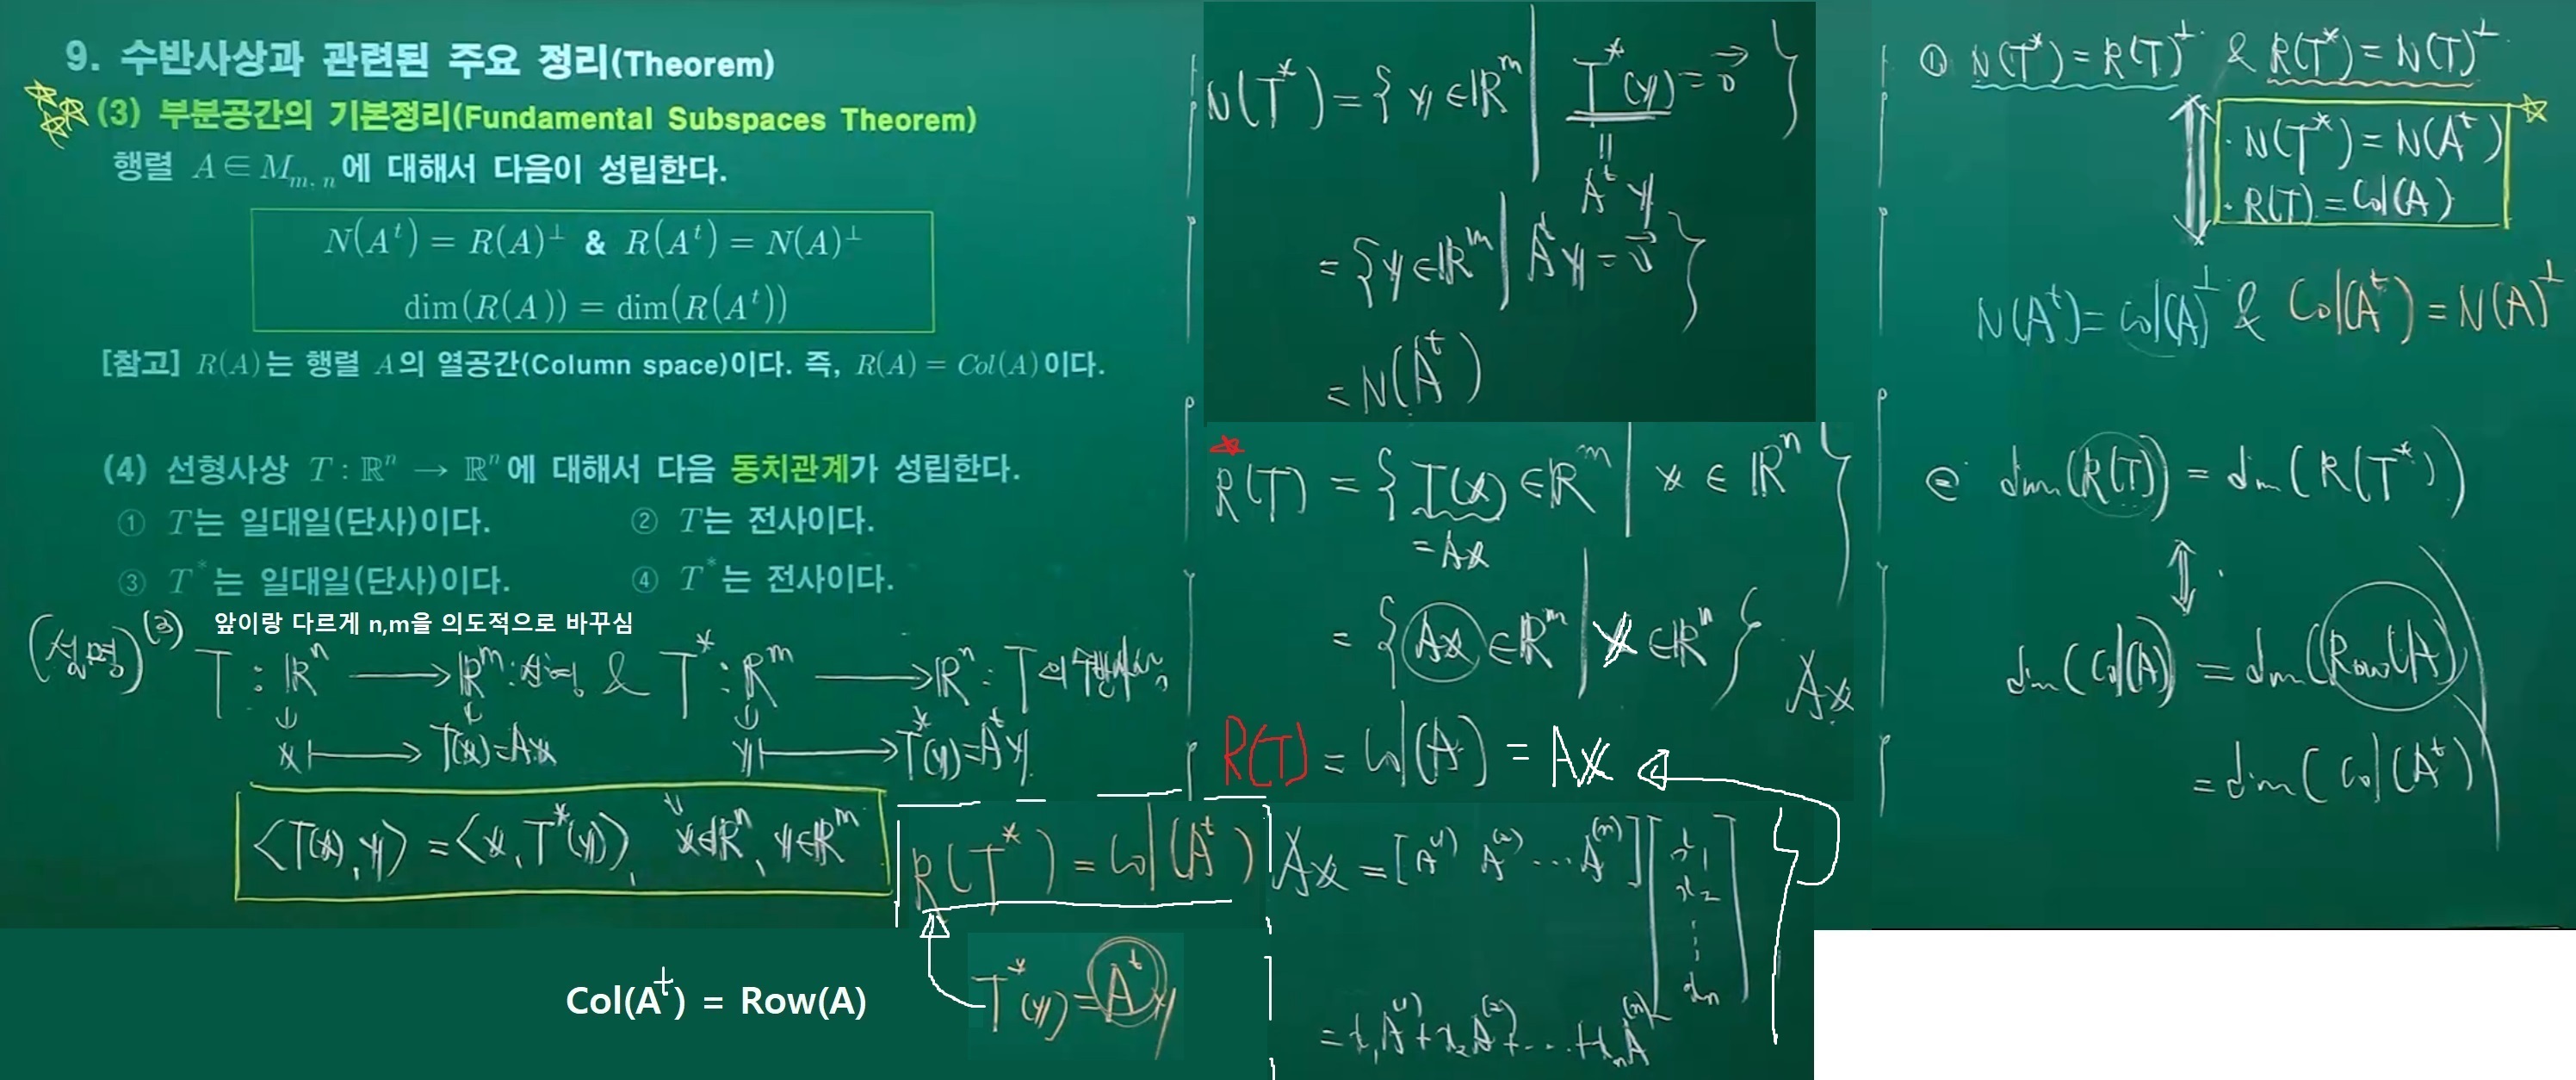 9. 수반사상과 관련된 주요 정리(Theorem)
(3) 부분공간의 기본정리(Fundamental Subspaces Theorem)
행렬 A ∈ M_{m, n}에 대해서 다음이 성립한다.
N(A^t) = R(A)^⊥ & R(A^t) = N(A)^⊥
dim(R(A)) = dim(R(A^t))
[참고] R(A)는 행렬 A의 열공간(Column space)이다. 즉, R(A) = Col(A)이다.
(4) 선형사상 T : ℝ^n → ℝ^n에 대해서 다음 동치관계가 성립한다.
① T는 일대일(단사)이다. ② T는 전사이다.
③ T^*는 일대일(단사)이다. ④ T^*는 전사이다.
(설명) (3) 앞이랑 다르게 n,m을 의도적으로 바꾸심
T : ℝ^n → ℝ^m : 선형 & T^* : ℝ^m → ℝ^n : T의 수반사상
x ↦ T(x)=Ax y ↦ T^*(y)=A^t y
<T(x), y> = <x, T^*(y)>, ∀x∈ℝ^n, y∈ℝ^m
R(T^*) = Col(A^t)
T^*(y) = A^t y
Col(A^t) = Row(A)
N(T^*) = { y ∈ ℝ^m | T^*(y) = 0⃗ }
= A^t y
= { y ∈ ℝ^m | A^t y = 0⃗ }
= N(A^t)
R(T) = { T(x) ∈ ℝ^m | x ∈ ℝ^n }
= Ax
= { Ax ∈ ℝ^m | x ∈ ℝ^n }
Ax
R(T) = Col(A) = Ax
Ax = [A^(1) A^(2) ... A^(n)] [x_1 x_2 ⋮ x_n]
= x_1 A^(1) + x_2 A^(2) + ... + x_n A^(n)
① N(T^*) = R(T)^⊥ & R(T^*) = N(T)^⊥
· N(T^*) = N(A^t)
· R(T) = Col(A)
N(A^t) = Col(A)^⊥ & Col(A^t) = N(A)^⊥
② dim(R(T)) = dim(R(T^*))
dim(Col(A)) = dim(Row(A))
= dim(Col(A^t))